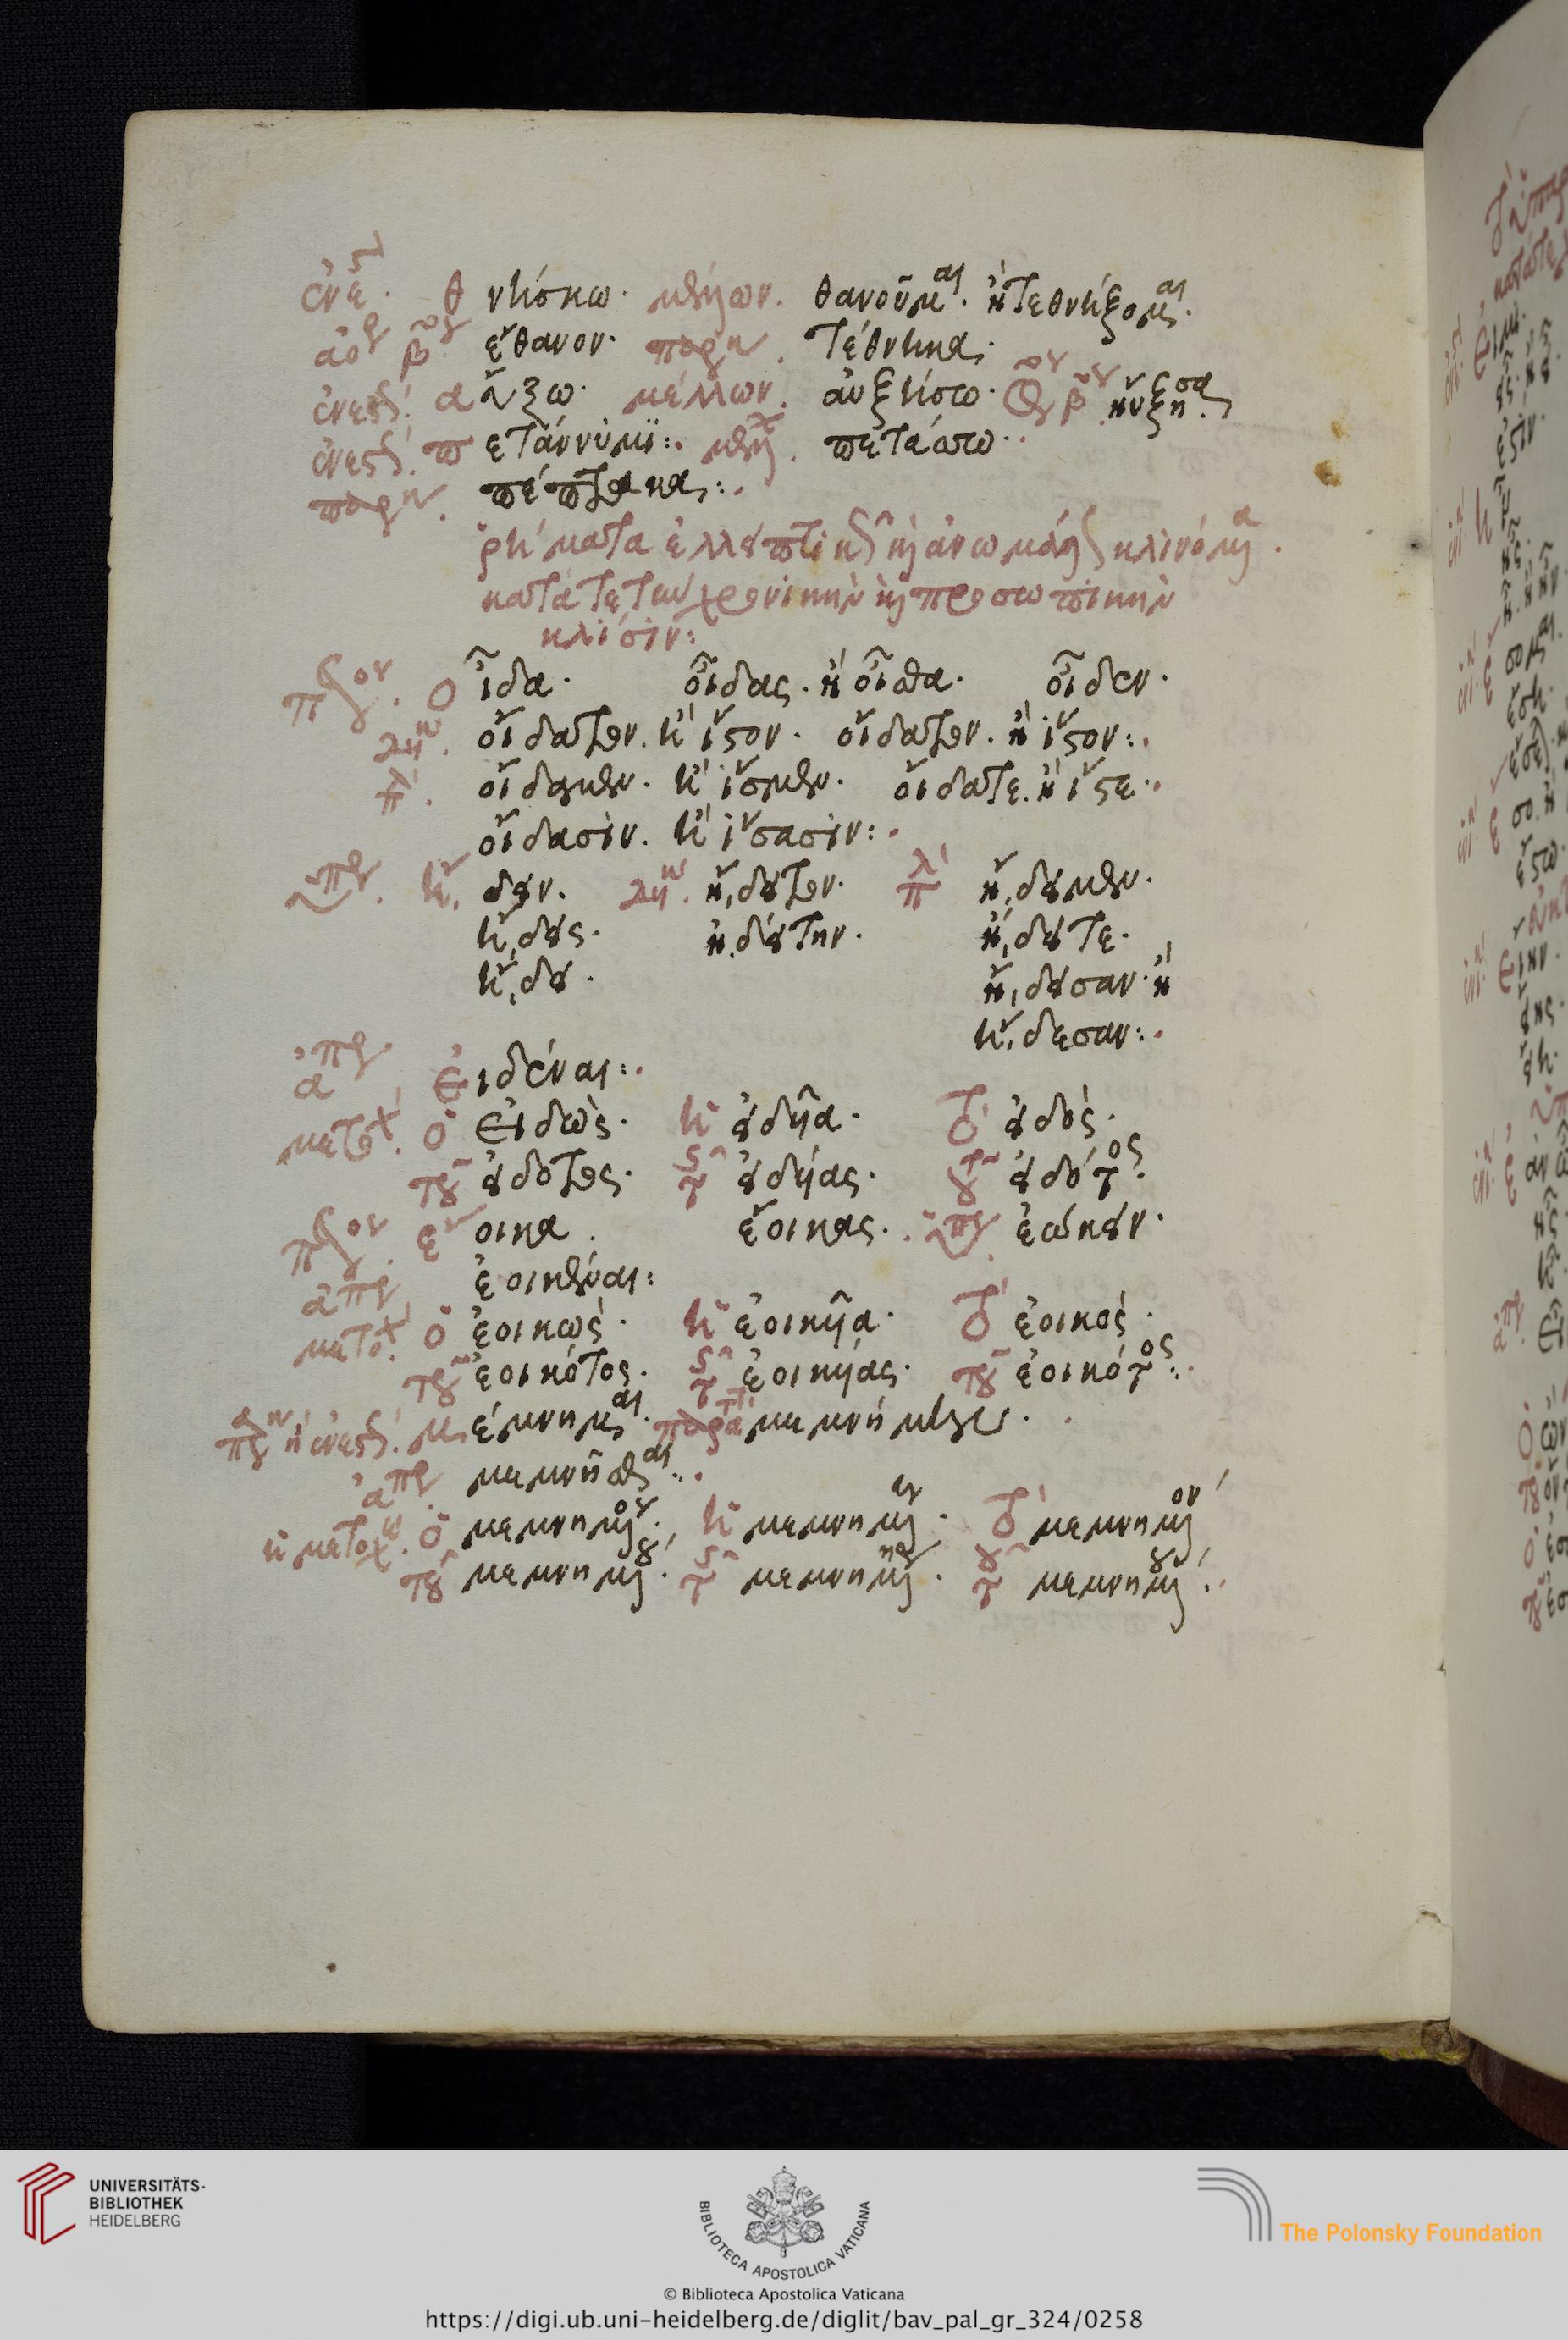 ἐνε. θνήσκω. μέλλων. θανοῦμαι. ἢ τεθνήξομαι.
ἀόρ β ἔθανον. παρακ. τέθνηκα.
ἐνεστ. αὔξω. μέλλων. αὐξήσω. β ηὔξησα
ἐνεστ. πετάννυμι:. μελλ. πετάσω.
παρακ. πέπτακα:.
ῥήματα ἐλλειπτικὰ καὶ ἀνωμάλως κλινόμενα.
κατά τε τὴν χρονικὴν καὶ προσωπικὴν
κλίσιν:
οἶδα. οἶδας. ἢ οἶσθα. οἶδεν.
οἴδατον. ἢ ἴστον. οἴδατον. ἢ ἴστον:.
οἴδαμεν. ἢ ἴσμεν. οἴδατε. ἢ ἴστε.
οἴδασιν. ἢ ἴσασιν:.
ᾔδειν. ᾔδειτον. ᾔδειμεν.
ᾔδεις. ᾐδείτην. ᾔδειτε.
ᾔδει. ᾔδεισαν. ἢ
ᾔδεσαν:.
ἀπρ εἰδέναι:.
μετοχ. ὁ εἰδὼς. ἡ εἰδυῖα. τὸ εἰδὸς.
τοῦ εἰδότος. τῆς εἰδυίας. τοῦ εἰδότος.
ἔοικα. ἔοικας. ἐῴκειν.
ἀπρ ἐοικέναι:
μετοχ. ὁ ἐοικὼς. ἡ ἐοικυῖα. τὸ ἐοικὸς.
τοῦ ἐοικότος. τῆς ἐοικυίας. τοῦ ἐοικότος:.
ἐνεστ. μέμνημαι. μεμνήμεθα.
ἀπρ. μεμνῆσθαι.
ἡ μετοχ. ὁ μεμνημένος. ἡ μεμνημένη. τὸ μεμνημένον
τοῦ μεμνημένου. τῆς μεμνημένης. τοῦ μεμνημένου.
UNIVERSITÄTS-
BIBLIOTHEK
HEIDELBERG
BIBLIOTECA APOSTOLICA VATICANA
The Polonsky Foundation
© Biblioteca Apostolica Vaticana
https://digi.ub.uni-heidelberg.de/diglit/bav_pal_gr_324/0258